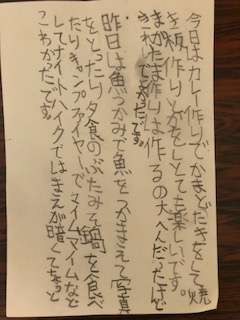 今日はカレー作りでかまどだきをして焼
き板作りとかをしとても楽しいです。
まがたま作りは作るの大へんだったけど
きれいでよかったです。
昨日は魚つかみで魚をつかまえて写真
をとったり夕食のぶたみそ鍋を食べ
たりキャンプファイヤーでマイムマイムなど
してナイトハイクではまえが暗くてちょっと
こわかったです。